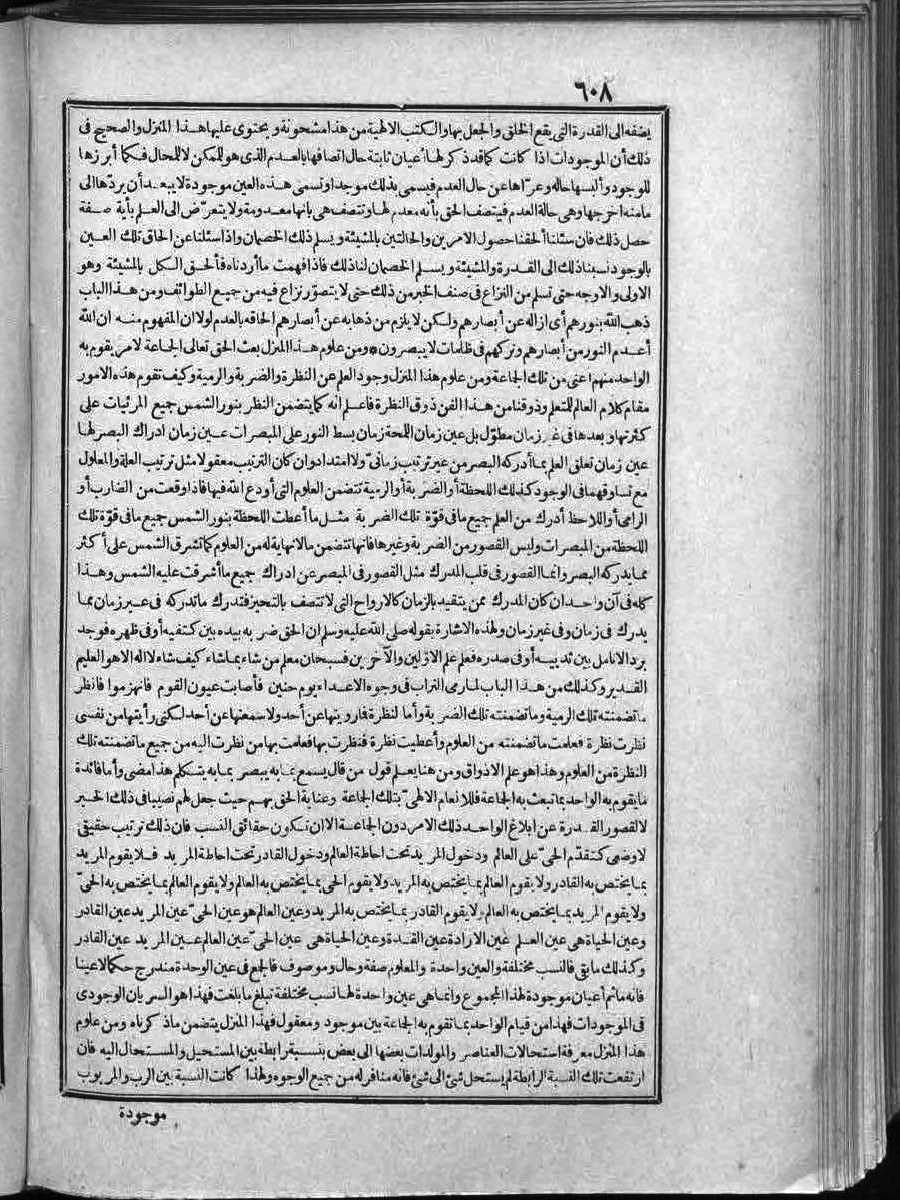 ٦٠٨
يضفه الى القدرة التى يقع الخلق والجعل بها والكتب الالهية من هذا مشحونة ويحتوى عليها هذا المنزل والصحيح فى
ذلك أن الموجودات اذا كانت كما قد ذكر لها أعيان ثابتة حال اتصافها بالعدم الذى هو للممكن لا للمحال فكما أبرزها
للوجود وألبسها حاله وعرّاها عن حال العدم فيسمى بذلك موجدا وتسمى هذه العين موجودة لا يبعد أن يردّها الى
ما منه اخرجها وهى حالة العدم فيتصف الحق بأنه معدم لها وتتصف هى بانها معدومة ولا يتعرّض الى العلم بأية صفة
حصل ذلك فان سئلنا ألحقنا حصول الامرين والحالتين بالمشيئة ويسلم ذلك الخصمان واذا سئلنا عن الحاق تلك العين
بالوجود نسبنا ذلك الى القدرة والمشيئة ويسلم الخصمان لنا ذلك فاذا فهمت ما أردناه فألحق الكل بالمشيئة وهو
الاولى والاوجه حتى تسلم من النزاع فى صنف الخبر من ذلك حتى لا يتصوّر نزاع فيه من جميع الطوائف ومن هذا الباب
ذهب الله بنورهم أى ازاله عن أبصارهم ولكن لا يلزم من ذهابه عن أبصارهم الحاقه بالعدم لولا ان المفهوم منه ان الله
أعدم النور من أبصارهم وتركهم فى ظلمات لا يبصرون * ومن علوم هذا المنزل بعث الحق تعالى الجماعة لامر يقوم به
الواحد منهم اعنى من تلك الجماعة ومن علوم هذا المنزل وجود العلم عن النظرة والضربة والرمية وكيف تقوم هذه الامور
مقام كلام العالم للمتعلم وذوقنا من هذا الفن ذوق النظرة فاعلم انه كما يتضمن النظر بنور الشمس جميع المرئيات على
كثرتها وبعدها فى غير زمان مطوّل بل عين زمان اللمحة زمان بسط النور على المبصرات عين زمان ادراك البصر لها
عين زمان تعلق العلم بما أدركه البصر من غير ترتيب زمانىّ ولا امتداد وان كان الترتيب معقولا مثل ترتيب العلة والمعلول
مع تساوقهما فى الوجود كذلك اللحظة أو الضربة أو الرمية تتضمن العلوم التى أودع الله فيها فاذا وقعت من الضارب أو
الرامى أو اللاحظ أدرك من العلم جميع ما فى قوّة تلك الضربة مثل ما أعطت اللحظة بنور الشمس جميع ما فى قوّة تلك
اللحظة من المبصرات وليس القصور من الضربة وغيرها فانها تتضمن ما لا نهاية له من العلوم كما تشرق الشمس على أكثر
مما يدركه البصر وانما القصور فى قلب المدرك مثل القصور فى المبصر عن ادراك جميع ما أشرقت عليه الشمس وهذا
كله فى آن واحد ان كان المدرك ممن يتقيد بالزمان كالارواح التى لا تتصف بالتحيز فتدرك ما تدركه فى غير زمان مما
يدرك فى زمان وفى غير زمان ولهذه الاشارة بقوله صلى الله عليه وسلم ان الحق ضربه بيده بين كتفيه أو فى ظهره فوجد
برد الانامل بين ثدييه أو فى صدره فعلم علم الاوّلين والآخرين فسبحان معلم من شاء بما شاء كيف شاء لا اله الا هو العليم
القدير وكذلك من هذا الباب لما رمى التراب فى وجوه الاعداء يوم حنين فأصابت عيون القوم فانهزموا فانظر
ما تضمنته تلك الرمية وما تضمنته تلك الضربة وأما النظرة فما رويتها عن أحد ولا سمعتها عن أحد لكنى رأيتها من نفسى
نظرت نظرة فعلمت ما تضمنته من العلوم وأعطيت نظرة فنظرت بها فعلمت بها من نظرت اليه من جميع ما تضمنته تلك
النظرة من العلوم وهذا هو علم الاذواق ومن هنا يعلم قول من قال يسمع بما به يبصر بما به يتكلم هذا مضى وأما فائدة
ما يقوم به الواحد بما تبعث به الجماعة فللانعام الالهىّ بتلك الجماعة وعناية الحق بهم حيث جعل لهم نصيبا فى ذلك الخير
لا لقصور القدرة عن ابلاغ الواحد ذلك الامر دون الجماعة الا ان تكون حقائق النسب فان ذلك ترتيب حقيقى
لا وضعى كتقدّم الحىّ على العالم ودخول المريد تحت احاطة العالم ودخول القادر تحت احاطة المريد فلا يقوم المريد
بما يختص به القادر ولا يقوم العالم بما يختص به المريد ولا يقوم الحى بما يختص به العالم ولا يقوم العالم بما يختص به الحىّ
ولا يقوم المريد بما يختص به العالم ولا يقوم القادر بما يختص به المريد وعين العالم هو عين الحىّ عين المريد عين القادر
وعين الحياة هى عين العلم عين الارادة عين القدرة وعين الحياة هى عين الحىّ عين العالم عين المريد عين القادر
وكذلك ما بقى فالنسب مختلفة والعين واحدة والمعلوم صفة وحال وموصوف فالجمع فى عين الوحدة مندرج حكما لا عينا
فانه ما ثم أعيان موجودة لهذا المجموع وانما هى عين واحدة لها نسب مختلفة تبلغ ما بلغت فهذا هو السريان الوجودى
فى الموجودات فهذا من قيام الواحد بما تقوم به الجماعة بين موجود ومعقول فهذا المنزل يتضمن ما ذكرناه ومن علوم
هذا المنزل معرفة استحالات العناصر والمولدات بعضها الى بعض بنسبة رابطة بين المستحيل والمستحال اليه فان
ارتفعت تلك النسبة الرابطة لم يستحل شئ الى شئ فانه منافر له من جميع الوجوه ولهذا كانت النسبة بين الرب والمربوب
موجودة